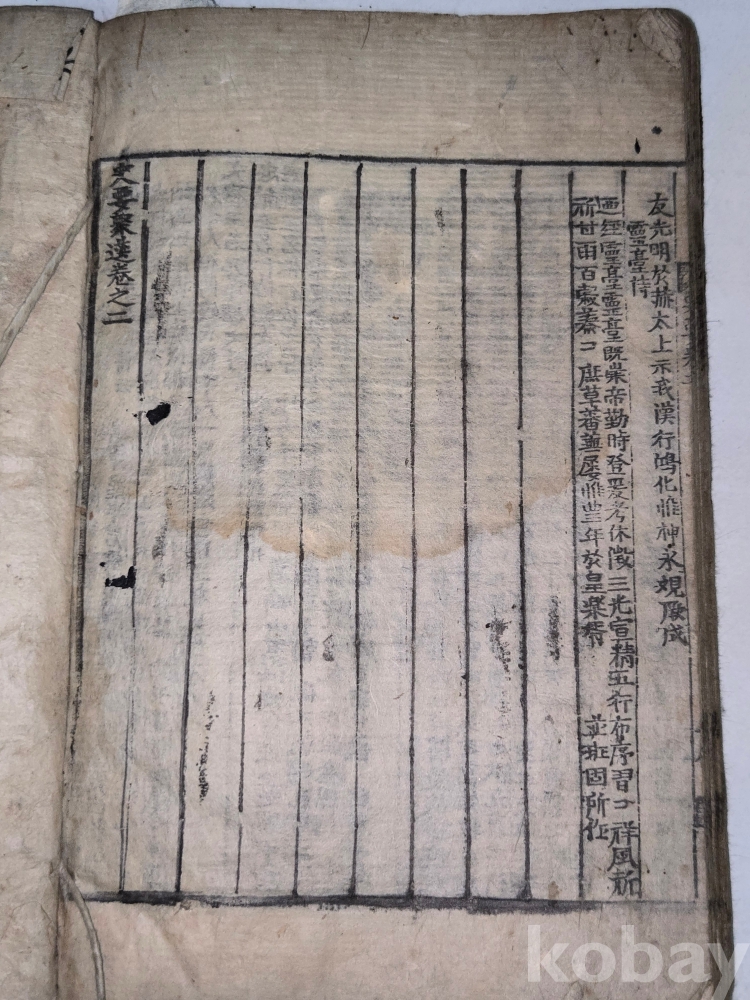 友光明於赫太上示我漢行鴻化惟神永觀厥成
靈臺詩
迺經靈臺靈臺既崇帝勤時登爰考休徵三光宣精五行布序習〻祥風祈
祈甘雨百穀蓁〻庶草蕃蕪屡惟豊年於皇樂胥 並班固所作
史要聚選卷之二
kobay